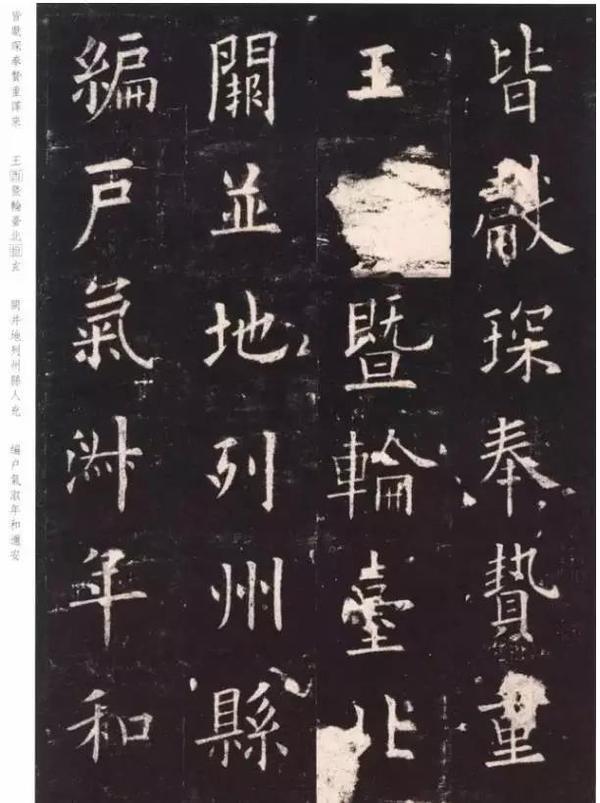 皆獻琛奉贄重
王暨輪臺北
闕並地列州縣
編戶氣淑年和
皆獻琛奉贄重譯來 王西暨輪臺北拒玄 闕并地列州縣人充 編戶氣淑年和邇安